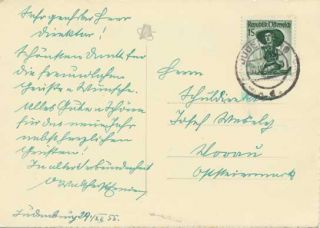 Sehr geehrter Herr
Direktor!
Schönsten Dank für
die freundlichen
Grüße u. Wünsche.
Alles Gute u. Schöne
für das neue Jahr
nebst herzlichen
Grüßen!
In alter Verbundenheit
Judenburg 29/XII 55.
Republik Österreich
1S
JUDENBURG
Herrn
Schuldirektor
Josef Wesely
Vorau
Oststeiermark